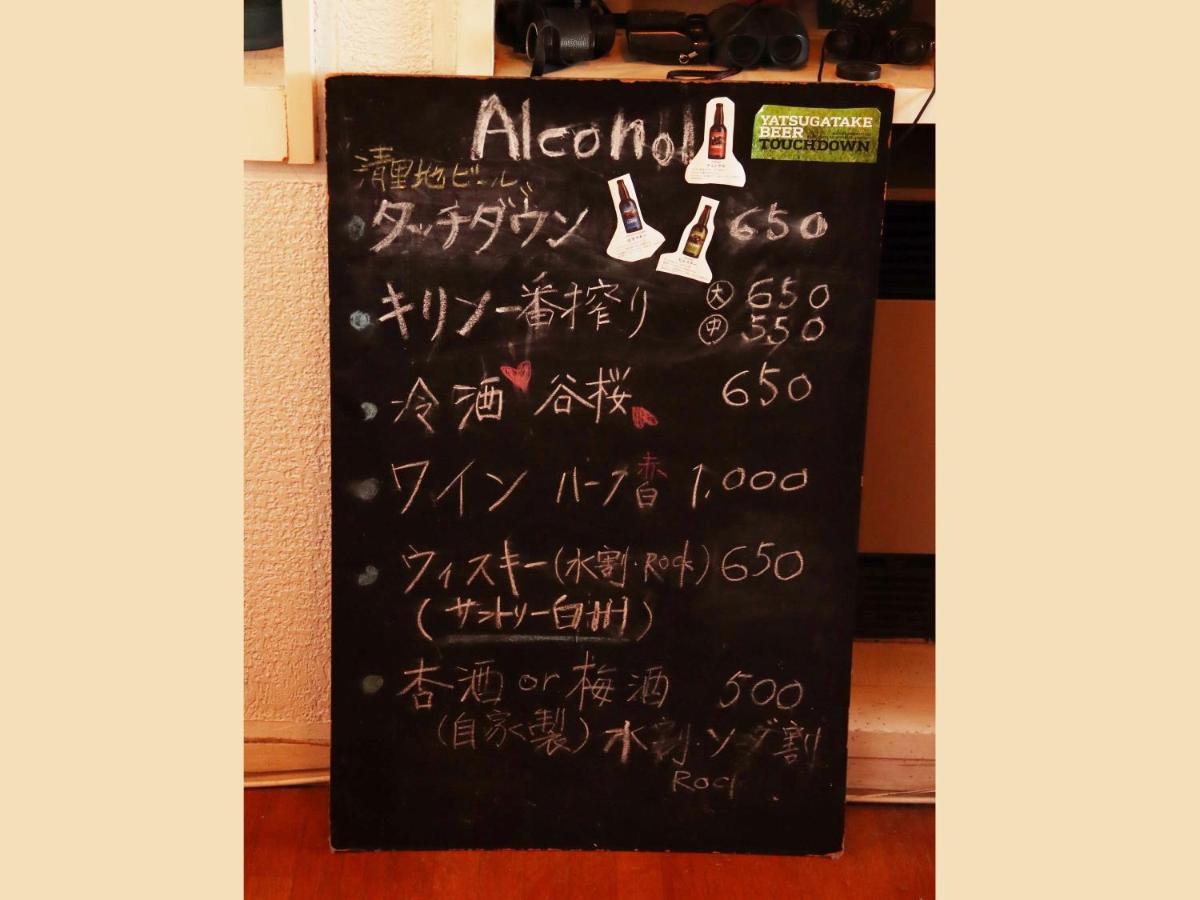 Alcohol
YATSUGATAKE
BEER
TOUCHDOWN
清里地ビール
タッチダウン 650
キリン一番搾り ㊅ 650
㊥ 550
冷酒 谷桜 650
ワイン ハーフ 赤 白 1,000
ウィスキー(水割・Rock) 650
(サントリー白州)
杏酒 or 梅酒 500
(自家製) 水割・ソーダ割
Rock